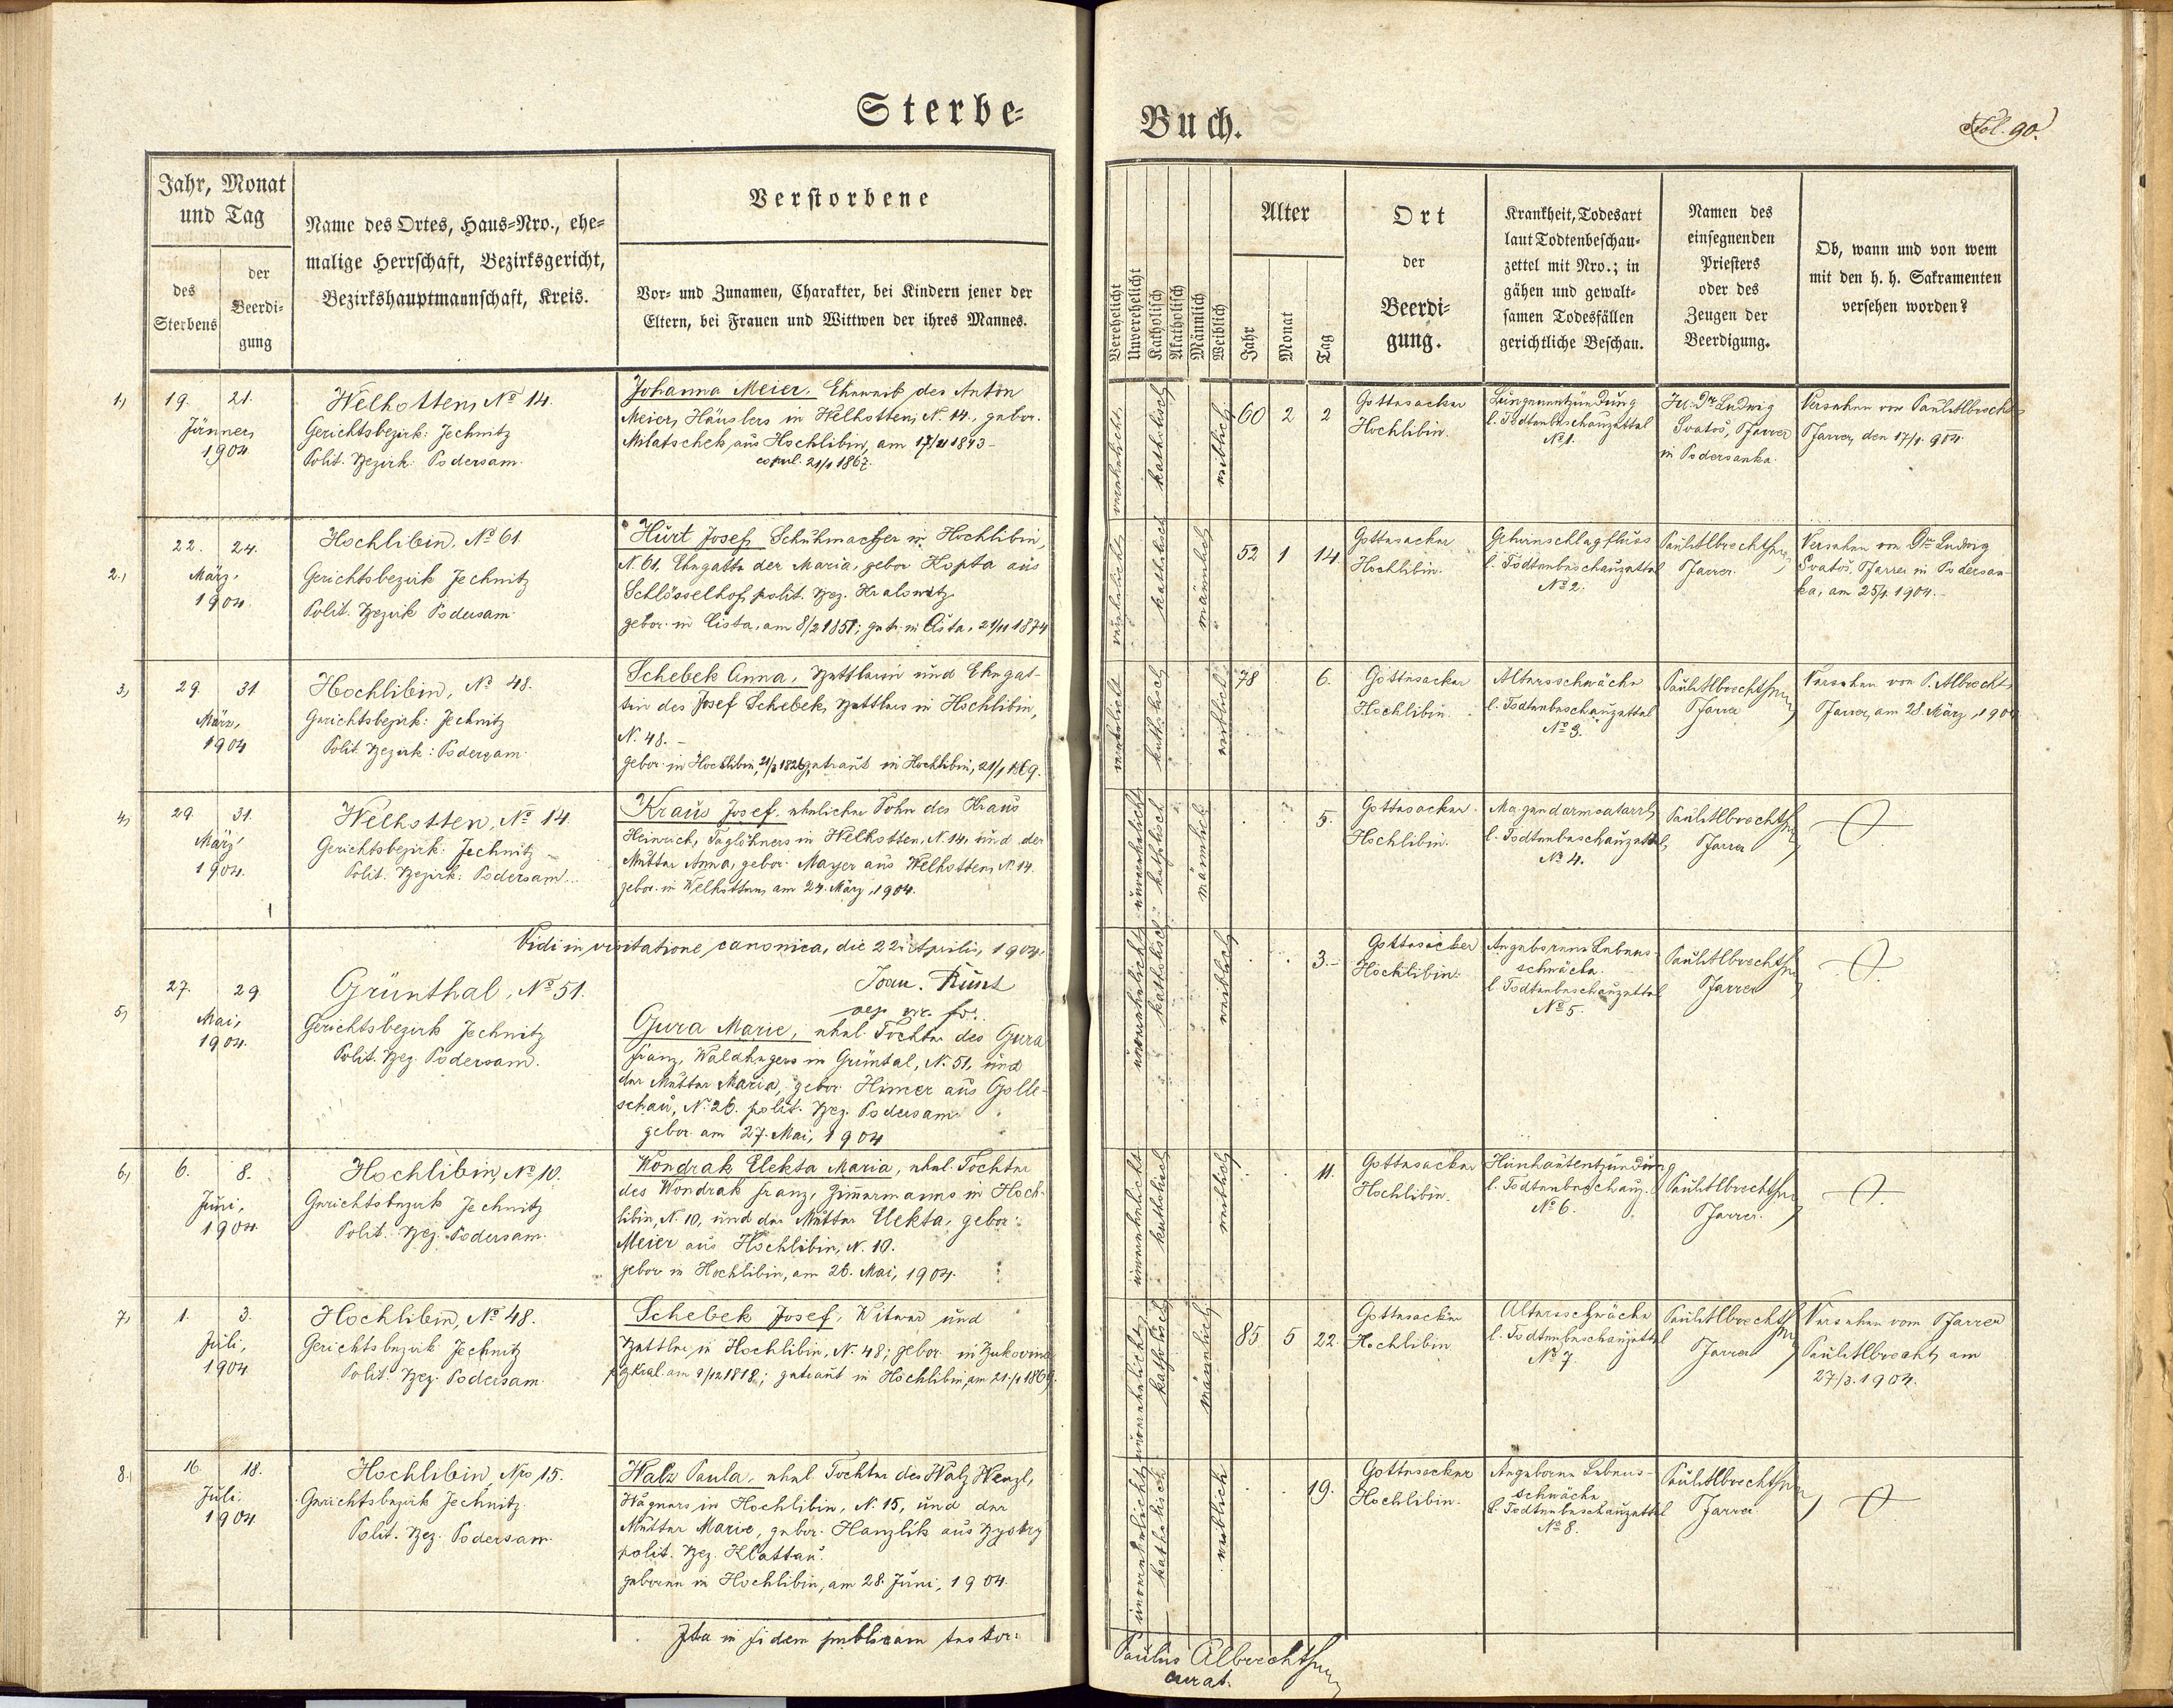 Sterbe-
Buch.
Fol. 90.
Jahr, Monat
und Tag
des
Sterbens
der
Beerdi-
gung
Name des Ortes, Haus-Nro., ehe-
malige Herrschaft, Bezirksgericht,
Bezirkshauptmannschaft, Kreis.
Verstorbene
Vor- und Zunamen, Charakter, bei Kindern jener der
Eltern, bei Frauen und Wittwen der ihres Mannes.
Verehelicht
Unverehelicht
Katholisch
Akatholisch
Männlich
Weiblich
Alter
Jahr
Monat
Tag
Ort
der
Beerdi-
gung.
Krankheit, Todesart
laut Todtenbeschau-
zettel mit Nro.; in
gähen und gewalt-
samen Todesfällen
gerichtliche Beschau.
Namen des
einsegnenden
Priesters
oder des
Zeugen der
Beerdigung.
Ob, wann und von wem
mit den h. h. Sakramenten
versehen worden?
1,) 19. 21.
Jänner,
1904.
Welhotten, No 14.
Gerichtsbezirk: Jechnitz
Polit. Bezirk: Podersam.
Johanna Meier. Eheweib des Anton
Meier, Häuslers in Welhotten, N. 14., gebor.
Milatschek aus Hochlibin, am 1843 –
copul. 21/1 1867.
verehelicht.
katholisch
weiblich
60 2 2
Gottesacker
Hochlibin.
Lungenentzündung
l. Todtenbeschauzettel
No 1.
Dr Ludwig
Svatoš, Pfarrer
in Podersanka.
Versehen von Paul Albrecht
Pfarrer, den 17/1. 904.
2.) 22. 24.
März,
1904.
Hochlibin, No 61.
Gerichtsbezirk Jechnitz
Polit. Bezirk Podersam
Hurt Josef, Schuhmacher in Hochlibin,
N. 61, Ehegatte der Maria, gebor. Kopta aus
Schlösselhof, polit. Bez. Kralowitz
gebor. in Cista, am 8/2 1851; getr. in Cista, 21/11 1874
verehelicht
katholisch
männlich
52 1 14
Gottesacker
Hochlibin.
Gehirnschlagfluss
l. Todtenbeschauzettel
No 2.
Paul Albrecht
Pfarrer.
Versehen von Dr Ludwig
Svatoš Pfarrer in Podersan-
ka, am 25/1. 1904. –
3,) 29. 31.
März,
1904
Hochlibin, No 48.
Gerichtsbezirk: Jechnitz
Polit. Bezirk: Podersam
Schebek Anna, Bettlerin und Ehegat-
tin des Josef Schebek, Bettlers in Hochlibin,
N. 48. –
gebor. in Hochlibin, 21/3 1826, getraut in Hochlibin, 21/1 1869.
verehelicht
katholisch
weiblich
78 6.
Gottesacker
Hochlibin
Altersschwäche
l. Todtenbeschauzettel
No 3.
Paul Albrecht
Pfarrer
Versehen von P. Albrecht,
Pfarrer, am 28. März, 1904
4,) 29. 31.
März,
1904.
Welhotten, No 14.
Gerichtsbezirk: Jechnitz
Polit. Bezirk: Podersam.
Kraus Josef, ehelicher Sohn des Kraus
Heinrich, Taglöhners in Welhotten, N. 14, und der
Mutter Anna, gebor. Mayer aus Welhotten, N. 14.
gebor. in Welhotten, am 24. März, 1904.
unverehelicht
katholisch
männlich
5.
Gottesacker
Hochlibin.
Magendarmcatarrh
l. Todtenbeschauzettel,
No 4.
Paul Albrecht
Pfarrer
Vidi in visitatione canonica, die 22. Aprilis, 1904.
5,) 27. 29.
Mai,
1904.
Grünthal, No 51.
Gerichtsbezirk Jechnitz
Polit. Bez. Podersam.
Gura Marie, ehel. Tochter des Gura
Franz, Waldhegers in Grüntal, N. 51, und
der Mutter Maria, gebor. Himer aus Golle-
schau, N. 26. polit. Bez. Podersam.
gebor. am 27. Mai, 1904
unverehelicht
katholisch
weiblich
3. –
Gottesacker
Hochlibin.
Angeborene Lebens-
schwäche
l. Todtenbeschauzettel
No 5.
Paul Albrecht
Pfarrer
6,) 6. 8.
Juni,
1904.
Hochlibin, No 10.
Gerichtsbezirk Jechnitz
Polit. Bez. Podersam.
Wondrak Elekta Maria, ehel. Tochter
des Wondrak Franz, Zimmermanns in Hoch-
libin, N. 10, und der Mutter Elekta, gebor.
Meier aus Hochlibin, N. 10.
gebor. in Hochlibin, am 26. Mai, 1904.
unverehelicht
katholisch
weiblich
11.
Gottesacker
Hochlibin.
Hirnhautentzündung
l. Todtenbeschauz.
No 6.
Paul Albrecht
Pfarrer.
7,) 1. 3.
Juli,
1904
Hochlibin, No 48.
Gerichtsbezirk Jechnitz
Polit. Bez. Podersam.
Schebek Josef, Witwer und
Bettler in Hochlibin, N. 48; gebor. in
am 9/12 1818; getraut in Hochlibin, am 21./1 1869.
unverehelicht
katholisch
männlich
85 5 22.
Gottesacker
Hochlibin
Altersschwäche
l. Todtenbeschauzettel
No 7.
Paul Albrecht
Pfarrer
Versehen vom Pfarrer
Paul Albrecht, am
27/3. 1904.
8.) 16. 18.
Juli,
1904.
Hochlibin, Nro 15.
Gerichtsbezirk Jechnitz.
Polit. Bez. Podersam.
Walz Paula, ehel. Tochter des Walz Wenzl,
Wagners in Hochlibin, N. 15, und der
Mutter Marie, gebor. Hanzlik aus Bystry
polit. Bez. Klattau.
geboren in Hochlibin, am 28. Juni, 1904.
unverehelicht
katholisch
weiblich
19.
Gottesacker
Hochlibin.
Angeborene Lebens-
schwäche
l. Todtenbeschauzettel
No 8.
Paul Albrecht
Pfarrer
Ita in fidem publicam testor:
Paulus Albrecht
curat.